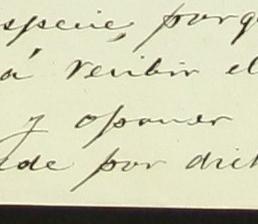 especie, porq
á recibir el
y oponer
ede por dich